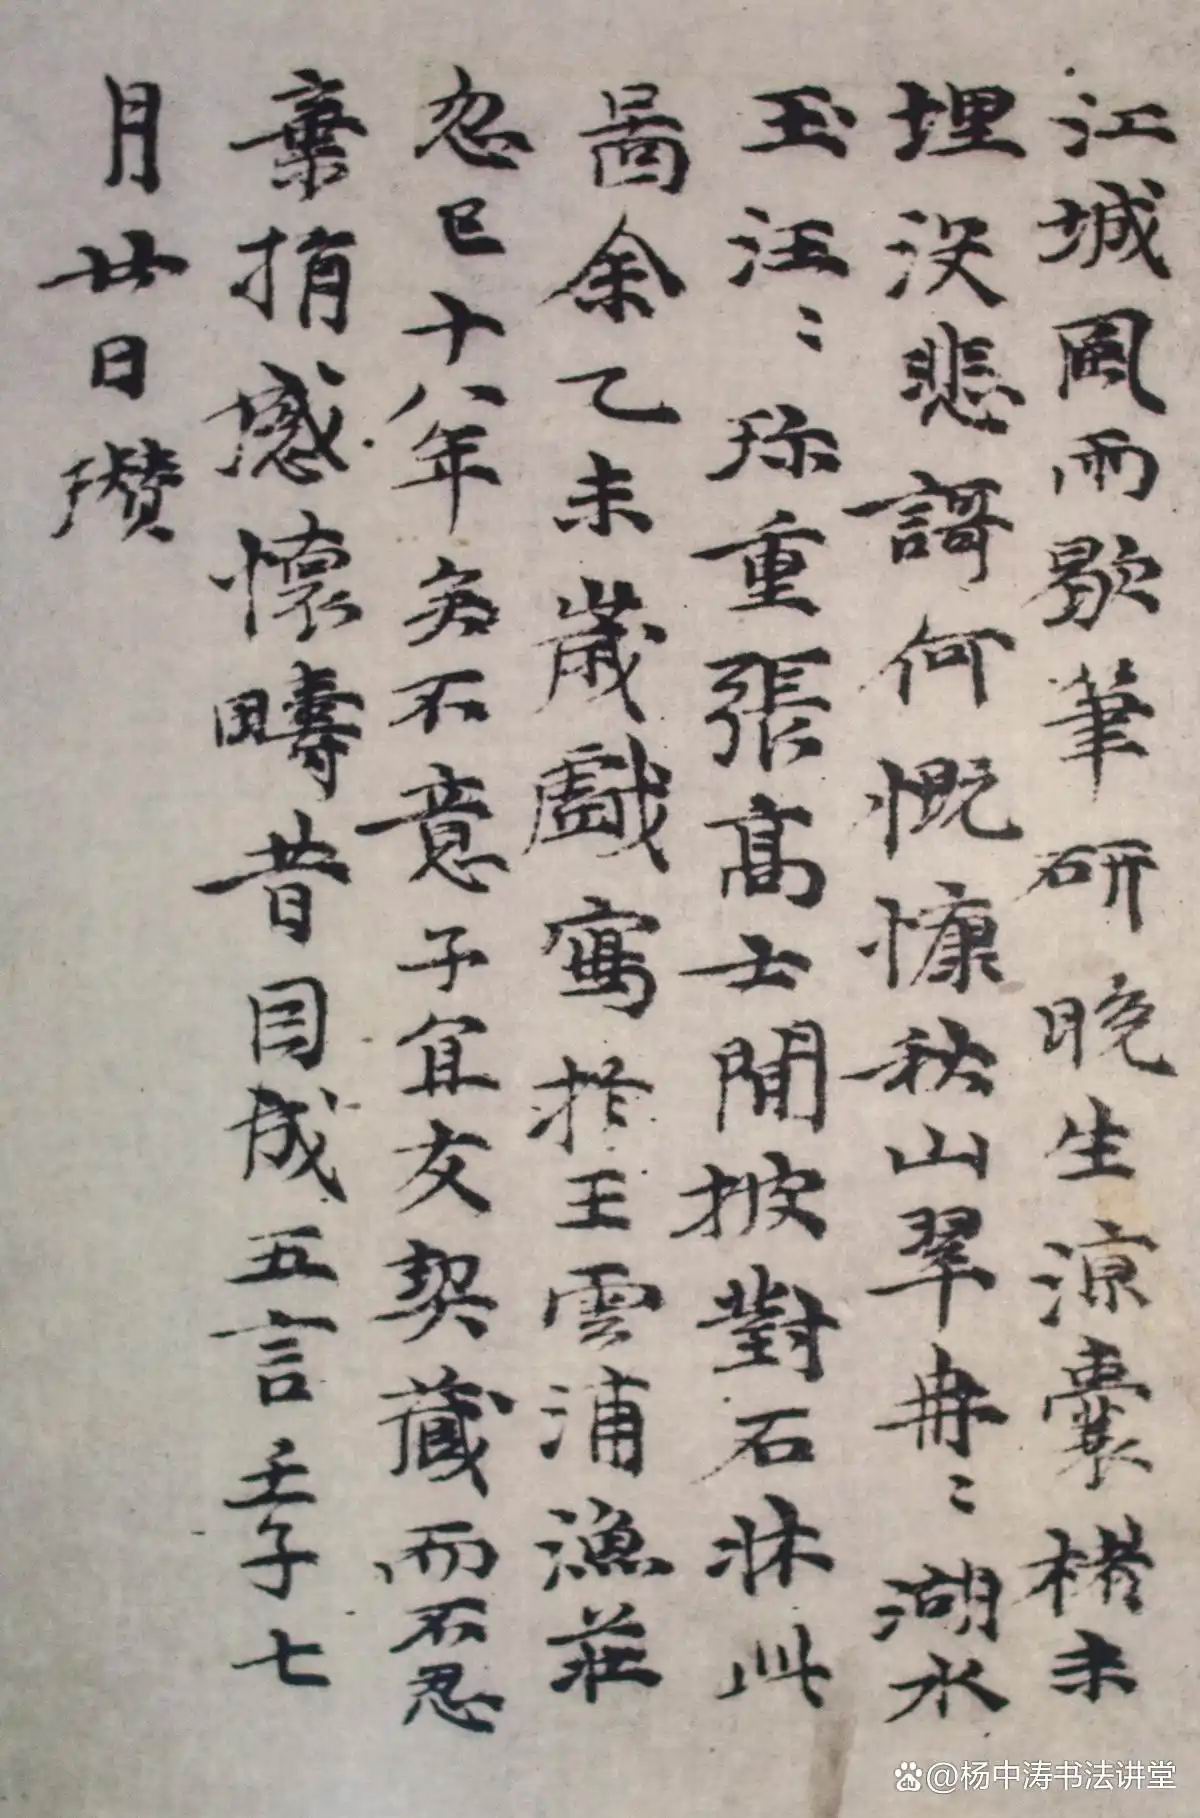 江城風雨歇筆研晚生涼囊楮未
埋没悲謌何慨慷秋山翠冉〻湖水
玉汪〻珎重張高士閒披對石牀此
啚余乙未歲戲寫於王雲浦漁莊
忽已十八年矣不意子宜友契藏而不忍
棄捐感懷疇昔因成五言壬子七
月廿日瓚
@杨中涛书法讲堂